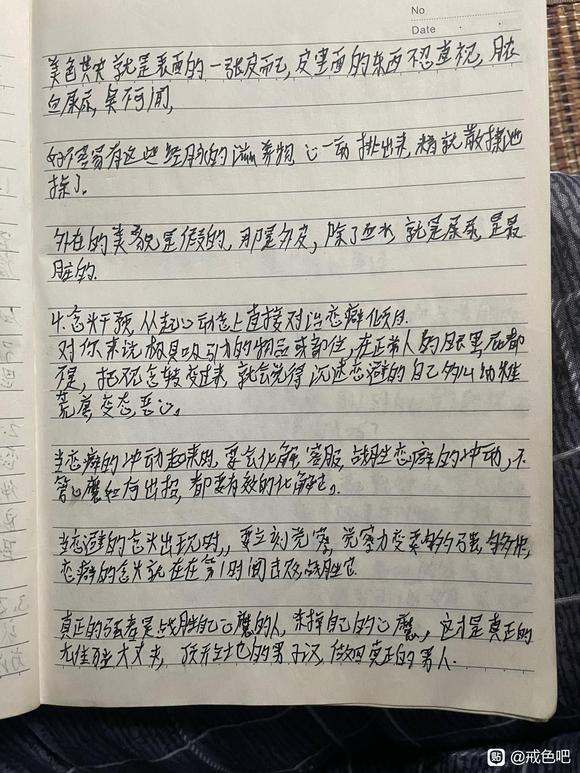 No
Date
美色其实就是表面的一张皮而已,皮里面的东西不忍直视,脓
血屎尿,臭不可闻,
好不容易有这些经脉的滋养物,心一动 排出来,精就散掉泄
掉了。
外在的美貌是假的,那是外皮,除了血水 就是屎尿 是最
脏的.
4.念头干预,从起心动念上直接对治恋癖倾向.
对你来说极具吸引力的物品或部位,在正常人的眼里屁都
不是,把观念转变过来 就会觉得沉迷恋癖的自己多么幼稚
荒唐,变态,恶心。
当恋癖的冲动起来时,要去化解 降服,战胜恋癖的冲动,不
管心魔如何出招,都要有效的化解它。
当恋癖的念头出现时,要立刻觉察,觉察力变
恋癖的念头就在第1时间 战胜它
真正的强者是战胜自己心魔的人,杀掉自己的心魔,这才是真正的
大丈夫,顶天立地的男子汉,做回真正的男人.
贴 @戒色吧